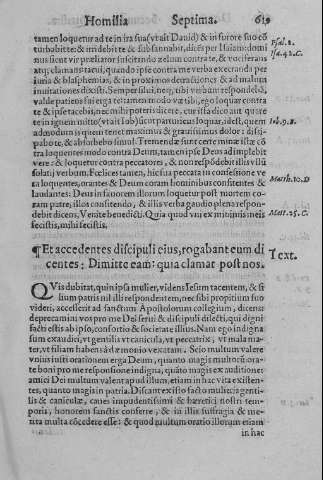 Homilia Septima. 619
tamen loquetur ad te in ira sua (vt ait Dauid) & in furore suo cō
turbabit te: & irridebit te & subsannabit, dices per Isaiam: domi
nus sicut vir præliator suscitando zelum contra te, & vociferans
atq; clamans: tacui, quando ipse contra me verba execranda per
iuria & blasphemias, & in proximos detractiones & ad malum
exactiua dixistis. Semper silui, neq; tibi verbum respondebo,
valde patiens fui erga te: tamen modo væ tibi, ego loquar contra
te & præ stabis, nec mihi poteris dicere, cur ista
Psal. 2.
Isa. 42. C.
Iob. 9. B.
pabo te, & absorbebo simul. Tremendæ sunt certe minæ istæ cō
tra loquentes modo contra Deum, tamen ipse Deus ad implebit
vere: & loquetur contra peccatores, & non respōdebit illis vllū
solatij verbum. Fœlices tamen, hic sua peccata in confessione ve
ra loquentes, orantes & Deum coram hominibus confitentes &
laudantes: Deus in fauorem illorum loquetur post mortem co
ram patre, illos confitendo, & illis verba gaudio plena respon-
debit dicens, Venite benedicti. Quia quod vni ex minimis meis
fecistis, mihi fecistis.
Matth. 10. D
Mat. 25. C.
¶ Et accedentes discipuli eius, rogabant eum di
centes: Dimitte eam: quia clamat post nos.
Text.
QVis dubitat, quin ipsa mulier, videns Iesum tacentem, & fi
lium patris nil illi respondentem, nec sibi propitium suo
videri, accesserit ad sanctum Apostolorum collegium, dicens:
deprecamini vos pro me Dei serui & discipuli dilecti, qui digni
facti estis ab ipso, consortio & societate illius. Nam ego indigna
sum exaudiri, vt gentilis vt canicula, vt peccatrix, vt mala ma-
ter, vt filiam habens à dæmonio vexatam. Scio multum valere
vnius iusti orationem erga Deum, quanto magis multorū ora-
te boni pro me responsione indigna, quāto magis ex auditione:
amici Dei multum valent apud illum, etiam in hac vita existen-
tes, quanto magis in patria. Discant ex isto facto mulieris genti-
lis & caniculæ, canes impudentissimi & hæretici nostri tem-
poris, honorem sanctis conferre, & in illis suffragia & me-
rita multa cōcedere esse: & quod multum oratio illorum etiam
in hac